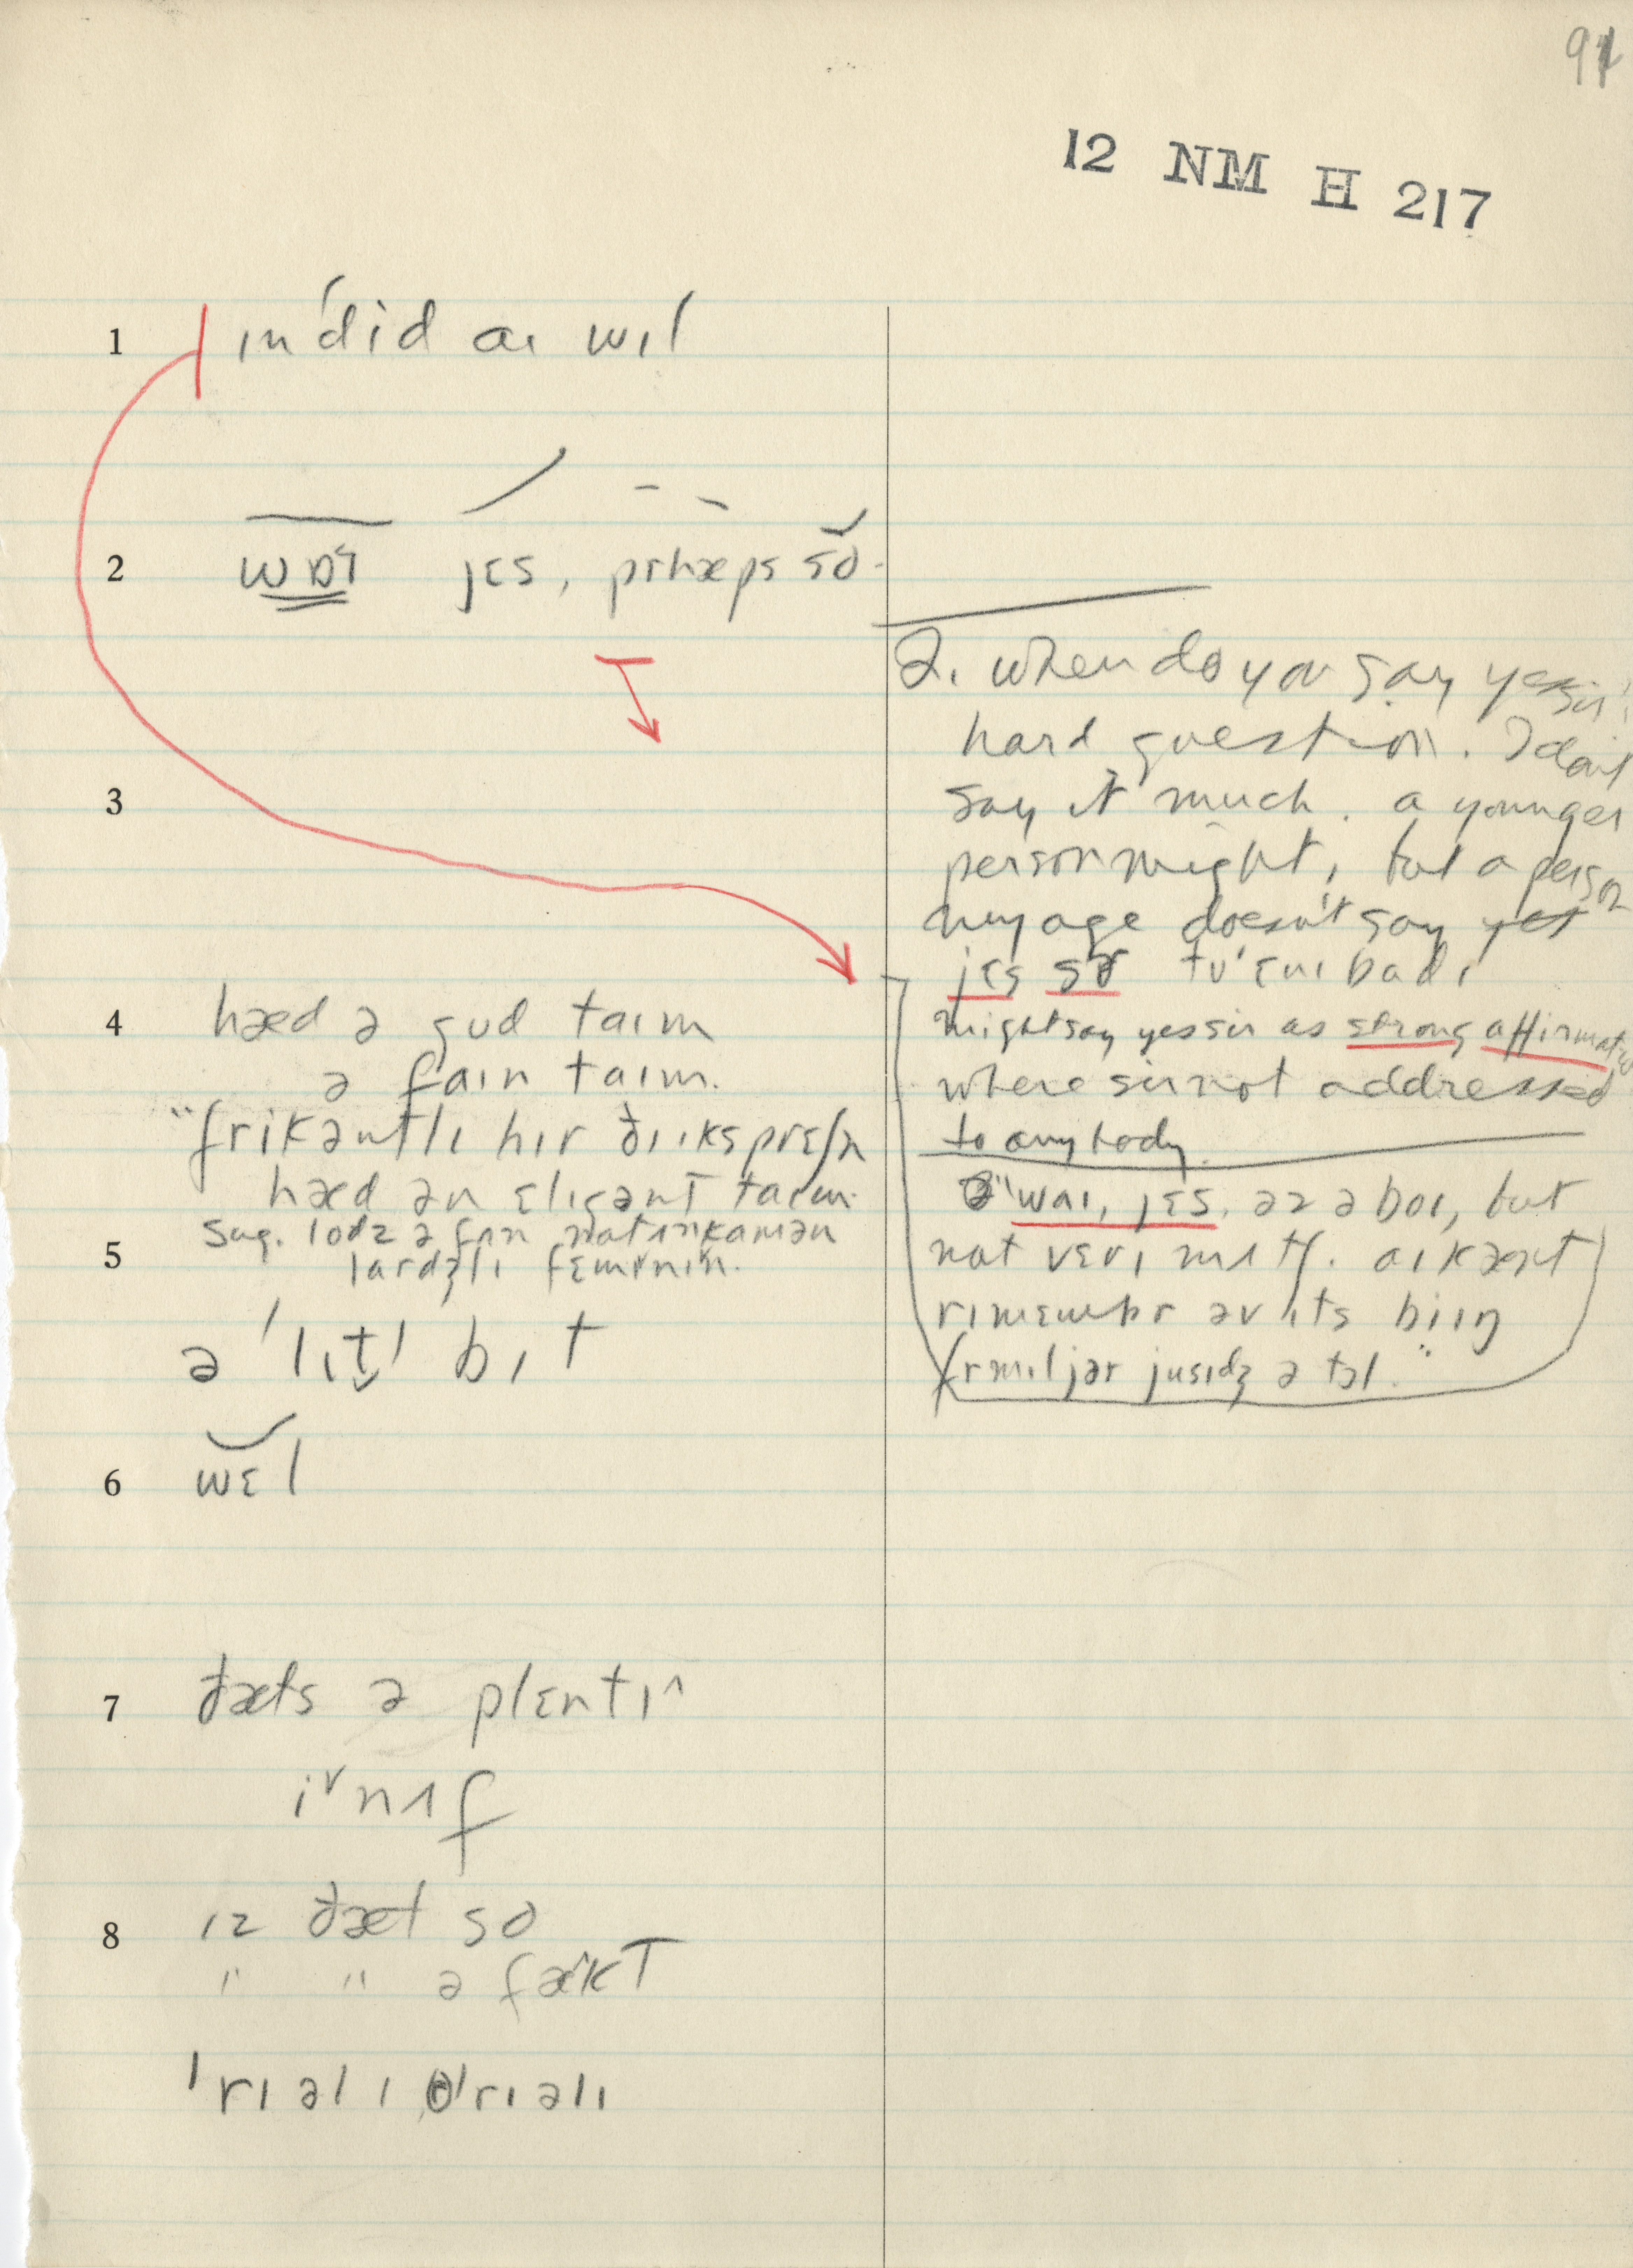 91
12 NM H 217
1 ɪn'did aɪ wɪl
2 jɛs, prhæps so
3
4 hæd ə gud taɪm
ə faɪn taɪm.
"frikəntlɪ hɪr ðɪ ɪksprɛʃn
hæd ən ɛlɪgənt taɪm.
sug. lodz ə fʌn natʌnkamən
5 lardʒlɪ fɛmɪnɪn.
ə 'lɪt̬l bɪt
6 wɛl
7 ðæts ə plɛntɪ^
i˅nʌf
8 ɪz ðæt so
" " ə fækt
'rɪəlɪ 'rɪəlɪ
2. when do you say yes sir?
hard question. I don't
say it much. a younger
person might, but a person
my age doesn't say yes
jɛs sɚ tu'ɛnɪbadɪ
might say yes sir as strong affirmative
where sir not addressed
to anybody.
"waɪ, jɛs. əz ə bɔɪ, but
nat vɛrɪ mʌtʃ. aɪ kænt
rɪmɛmbr əv ɪts biɪŋ
frmɪljər jusɪdʒ ə tɔl."